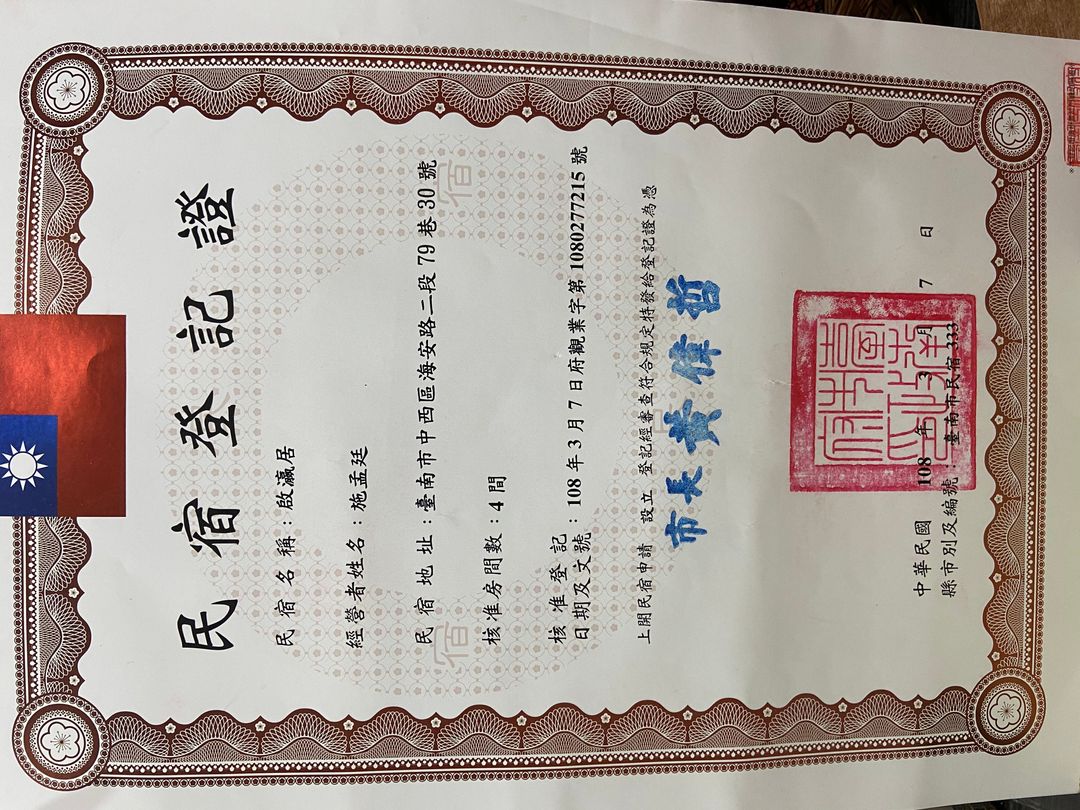 民宿登記證
民宿名稱：啟瀛居
經營者姓名：施孟廷
民宿地址：臺南市中西區海安路二段79巷30號
核准房間數：4間
核准登記
日期及文號：108年3月7日府觀業字第1080277215號
上開民宿申請 設立 登記經審查符合規定特發給登記證為憑
市長黃偉哲
中華民國 108 年 3 月 7 日
縣市別及編號：臺南市民宿333
臺南市政府印
宿
宿